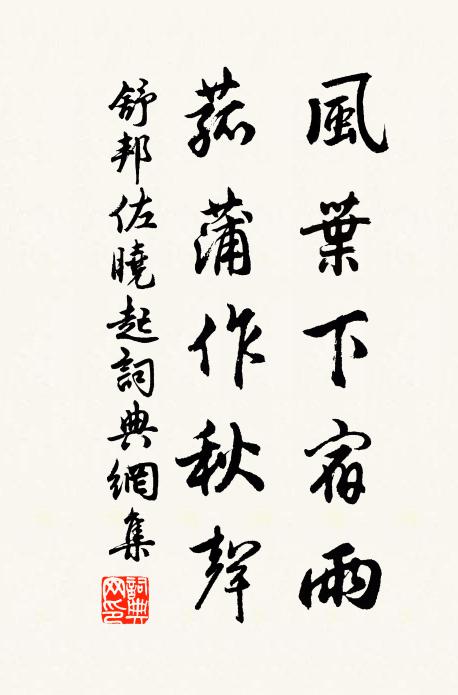 風葉下宿雨
菰蒲作秋聲
舒邦佐曉起詞典網集
詞典網印